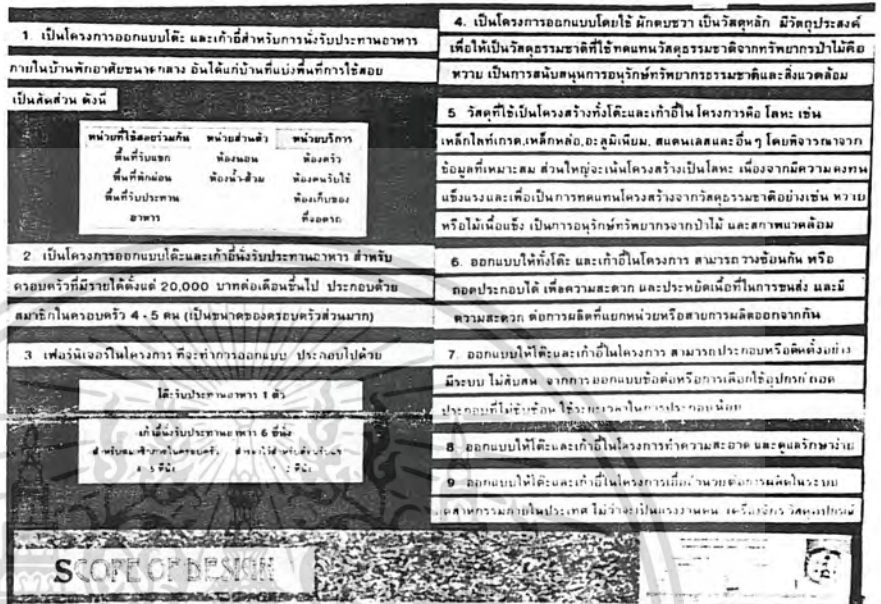 1. เป็นโครงการออกแบบโต๊ะ และเก้าอี้สำหรับการนั่งรับประทานอาหาร
ภายในบ้านพักอาศัยขนาดกลาง อันได้แก่บ้านที่แบ่งพื้นที่การใช้สอย
เป็นสัดส่วน ดังนี้
หน่วยที่ใช้สอยร่วมกัน หน่วยส่วนตัว หน่วยบริการ
พื้นที่รับแขก ห้องนอน ห้องครัว
พื้นที่พักผ่อน ห้องน้ำ-ส้วม ห้องคนรับใช้
พื้นที่รับประทาน ห้องเก็บของ
อาหาร ที่จอดรถ
2. เป็นโครงการออกแบบโต๊ะและเก้าอี้นั่งรับประทานอาหาร สำหรับ
ครอบครัวที่มีรายได้ตั้งแต่ 20,000 บาทต่อเดือนขึ้นไป ประกอบด้วย
สมาชิกในครอบครัว 4 - 5 คน (เป็นขนาดของครอบครัวส่วนมาก)
3 เฟอร์นิเจอร์ในโครงการ ที่จะทำการออกแบบ ประกอบไปด้วย
โต๊ะรับประทานอาหาร 1 ตัว
เก้าอี้นั่งรับประทานอาหาร 6 ที่นั่ง
สำหรับสมาชิกภายในครอบครัว
5 ที่นั่ง 2 ที่นั่ง
4. เป็นโครงการออกแบบโดยใช้ ผักตบชวา เป็นวัสดุหลัก มีวัตถุประสงค์
เพื่อให้เป็นวัสดุธรรมชาติที่ใช้ทดแทนวัสดุธรรมชาติจากทรัพยากรป่าไม้คือ
หวาย เป็นการสนับสนุนการอนุรักษ์ทรัพยากรธรรมชาติและสิ่งแวดล้อม
5 วัสดุที่ใช้เป็นโครงสร้างทั้งโต๊ะและเก้าอี้ในโครงการคือ โลหะ เช่น
เหล็กไลท์เกรด,เหล็กหล่อ,อะลูมิเนียม, สแตนเลสและอื่นๆ โดยพิจารณาจาก
ข้อมูลที่เหมาะสม ส่วนใหญ่จะเน้นโครงสร้างเป็นโลหะ เนื่องจากมีความคงทน
แข็งแรงและเพื่อเป็นการทดแทนโครงสร้างจากวัสดุธรรมชาติอย่างเช่น หวาย
หรือไม้เนื้อแข็ง เป็นการอนุรักษ์ทรัพยากรจากป่าไม้ และสภาพแวดล้อม
6. ออกแบบให้ทั้งโต๊ะ และเก้าอี้ในโครงการ สามารถวางซ้อนกัน หรือ
ถอดประกอบได้ เพื่อความสะดวก และประหยัดเนื้อที่ในการขนส่ง และมี
ความสะดวก ต่อการผลิตที่แยกหน่วยหรือสายการผลิตออกจากกัน
7. ออกแบบให้โต๊ะและเก้าอี้ในโครงการ สามารถประกอบหรือติดตั้งอย่าง
มีระบบ ไม่สับสน จากการออกแบบข้อต่อหรือการเลือกใช้อุปกรณ์ ถอด
ประกอบที่ไม่ซับซ้อน ใช้ระยะเวลาในการประกอบน้อย
8 ออกแบบให้โต๊ะและเก้าอี้ในโครงการทำความสะอาด และดูแลรักษาง่าย
9 ออกแบบให้โต๊ะและเก้าอี้ในโครงการเอื้ออำนวยต่อการผลิตในระบบ
อุตสาหกรรมภายในประเทศ ไม่ว่าจะเป็นแรงงานคน เครื่องจักร วัสดุอุปกรณ์
SCOPE OF DESIGN